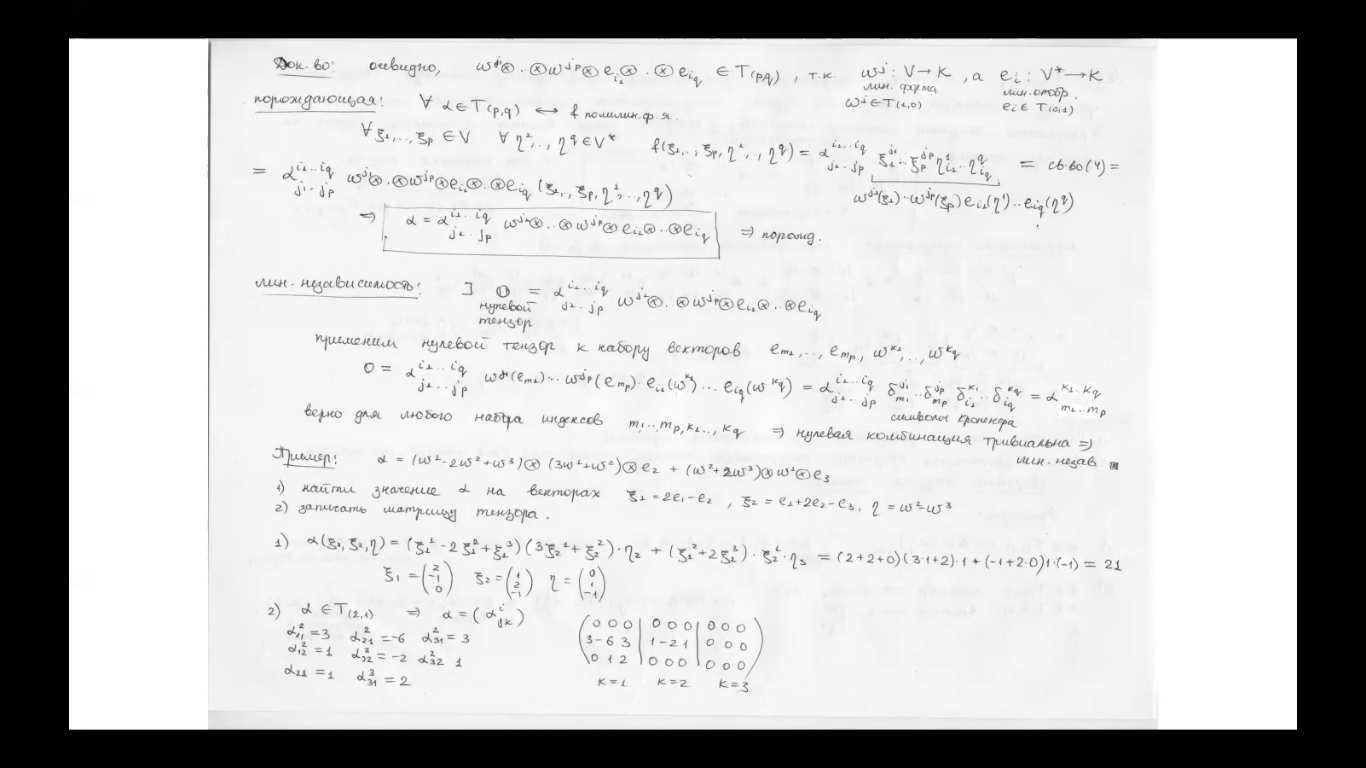 Док-во: очевидно, ω^{j₁}⊗..⊗ω^{j_p}⊗e_{i₁}⊗..⊗e_{i_q} ∈ T(p,q), т.к. ω^j: V→K, а e_i: V*→K
лин. форма лин. отобр.
ω^j ∈ T(1,0) e_i ∈ T(0,1)
порождающая: ∀ α∈T(p,q) ↔ f полилин. ф-я.
∀ ξ₁,..,ξ_p ∈V ∀ η¹,..,η^q ∈V* f(ξ₁,..,ξ_p,η¹,..,η^q) = α^{i₁..i_q}_{j₁..j_p} ξ₁^{j₁}..ξ_p^{j_p} η¹_{i₁}..η^q_{i_q} = св-во(4) =
ω^{j₁}(ξ₁)..ω^{j_p}(ξ_p) e_{i₁}(η¹)..e_{i_q}(η^q)
= α^{i₁..i_q}_{j₁..j_p} ω^{j₁}⊗..⊗ω^{j_p}⊗e_{i₁}⊗..⊗e_{i_q} (ξ₁,..,ξ_p,η¹,..,η^q)
⇒ α = α^{i₁..i_q}_{j₁..j_p} ω^{j₁}⊗..⊗ω^{j_p}⊗e_{i₁}⊗..⊗e_{i_q} ⇒ порожд.
лин. независимость: ] 0 = α^{i₁..i_q}_{j₁..j_p} ω^{j₁}⊗..⊗ω^{j_p}⊗e_{i₁}⊗..⊗e_{i_q}
нулевой
тензор
применим нулевой тензор к набору векторов e_{m₁},..,e_{m_p}, ω^{k₁},..,ω^{k_q}
0 = α^{i₁..i_q}_{j₁..j_p} ω^{j₁}(e_{m₁})..ω^{j_p}(e_{m_p})·e_{i₁}(ω^{k₁})...e_{i_q}(ω^{k_q}) = α^{i₁..i_q}_{j₁..j_p} δ^{j₁}_{m₁}..δ^{j_p}_{m_p} δ^{k₁}_{i₁}..δ^{k_q}_{i_q} = α^{k₁..k_q}_{m₁..m_p}
символы Кронекера
верно для любого набора индексов m₁..m_p, k₁..,k_q ⇒ нулевая комбинация тривиальна ⇒
лин. незав
Пример: α = (ω¹-2ω²+ω³)⊗(3ω¹+ω²)⊗e₂ + (ω²+2ω³)⊗ω¹⊗e₃
1) найти значение α на векторах ξ₁=2e₁-e₂, ξ₂=e₁+2e₂-e₃, η=ω²-ω³
2) записать матрицу тензора.
1) α(ξ₁,ξ₂,η) = (ξ₁¹-2ξ₁²+ξ₁³)(3ξ₂¹+ξ₂²)·η₂ + (ξ₁²+2ξ₁³)·ξ₂¹·η₃ = (2+2+0)(3·1+2)·1+(-1+2·0)1·(-1) = 21
ξ₁ = (2 -1 0) ξ₂ = (1 2 -1) η = (0 1 -1)
2) α ∈T(2,1) ⇒ α = (α^i_{jk})
α²₁₁=3 α²₂₁=-6 α²₃₁=3
α²₁₂=1 α²₂₂=-2 α²₃₂ 1
α₂₁=1 α³₃₁=2
0 0 0 | 0 0 0 | 0 0 0
3 -6 3 | 1 -2 1 | 0 0 0
0 1 2 | 0 0 0 | 0 0 0
k=1 k=2 k=3